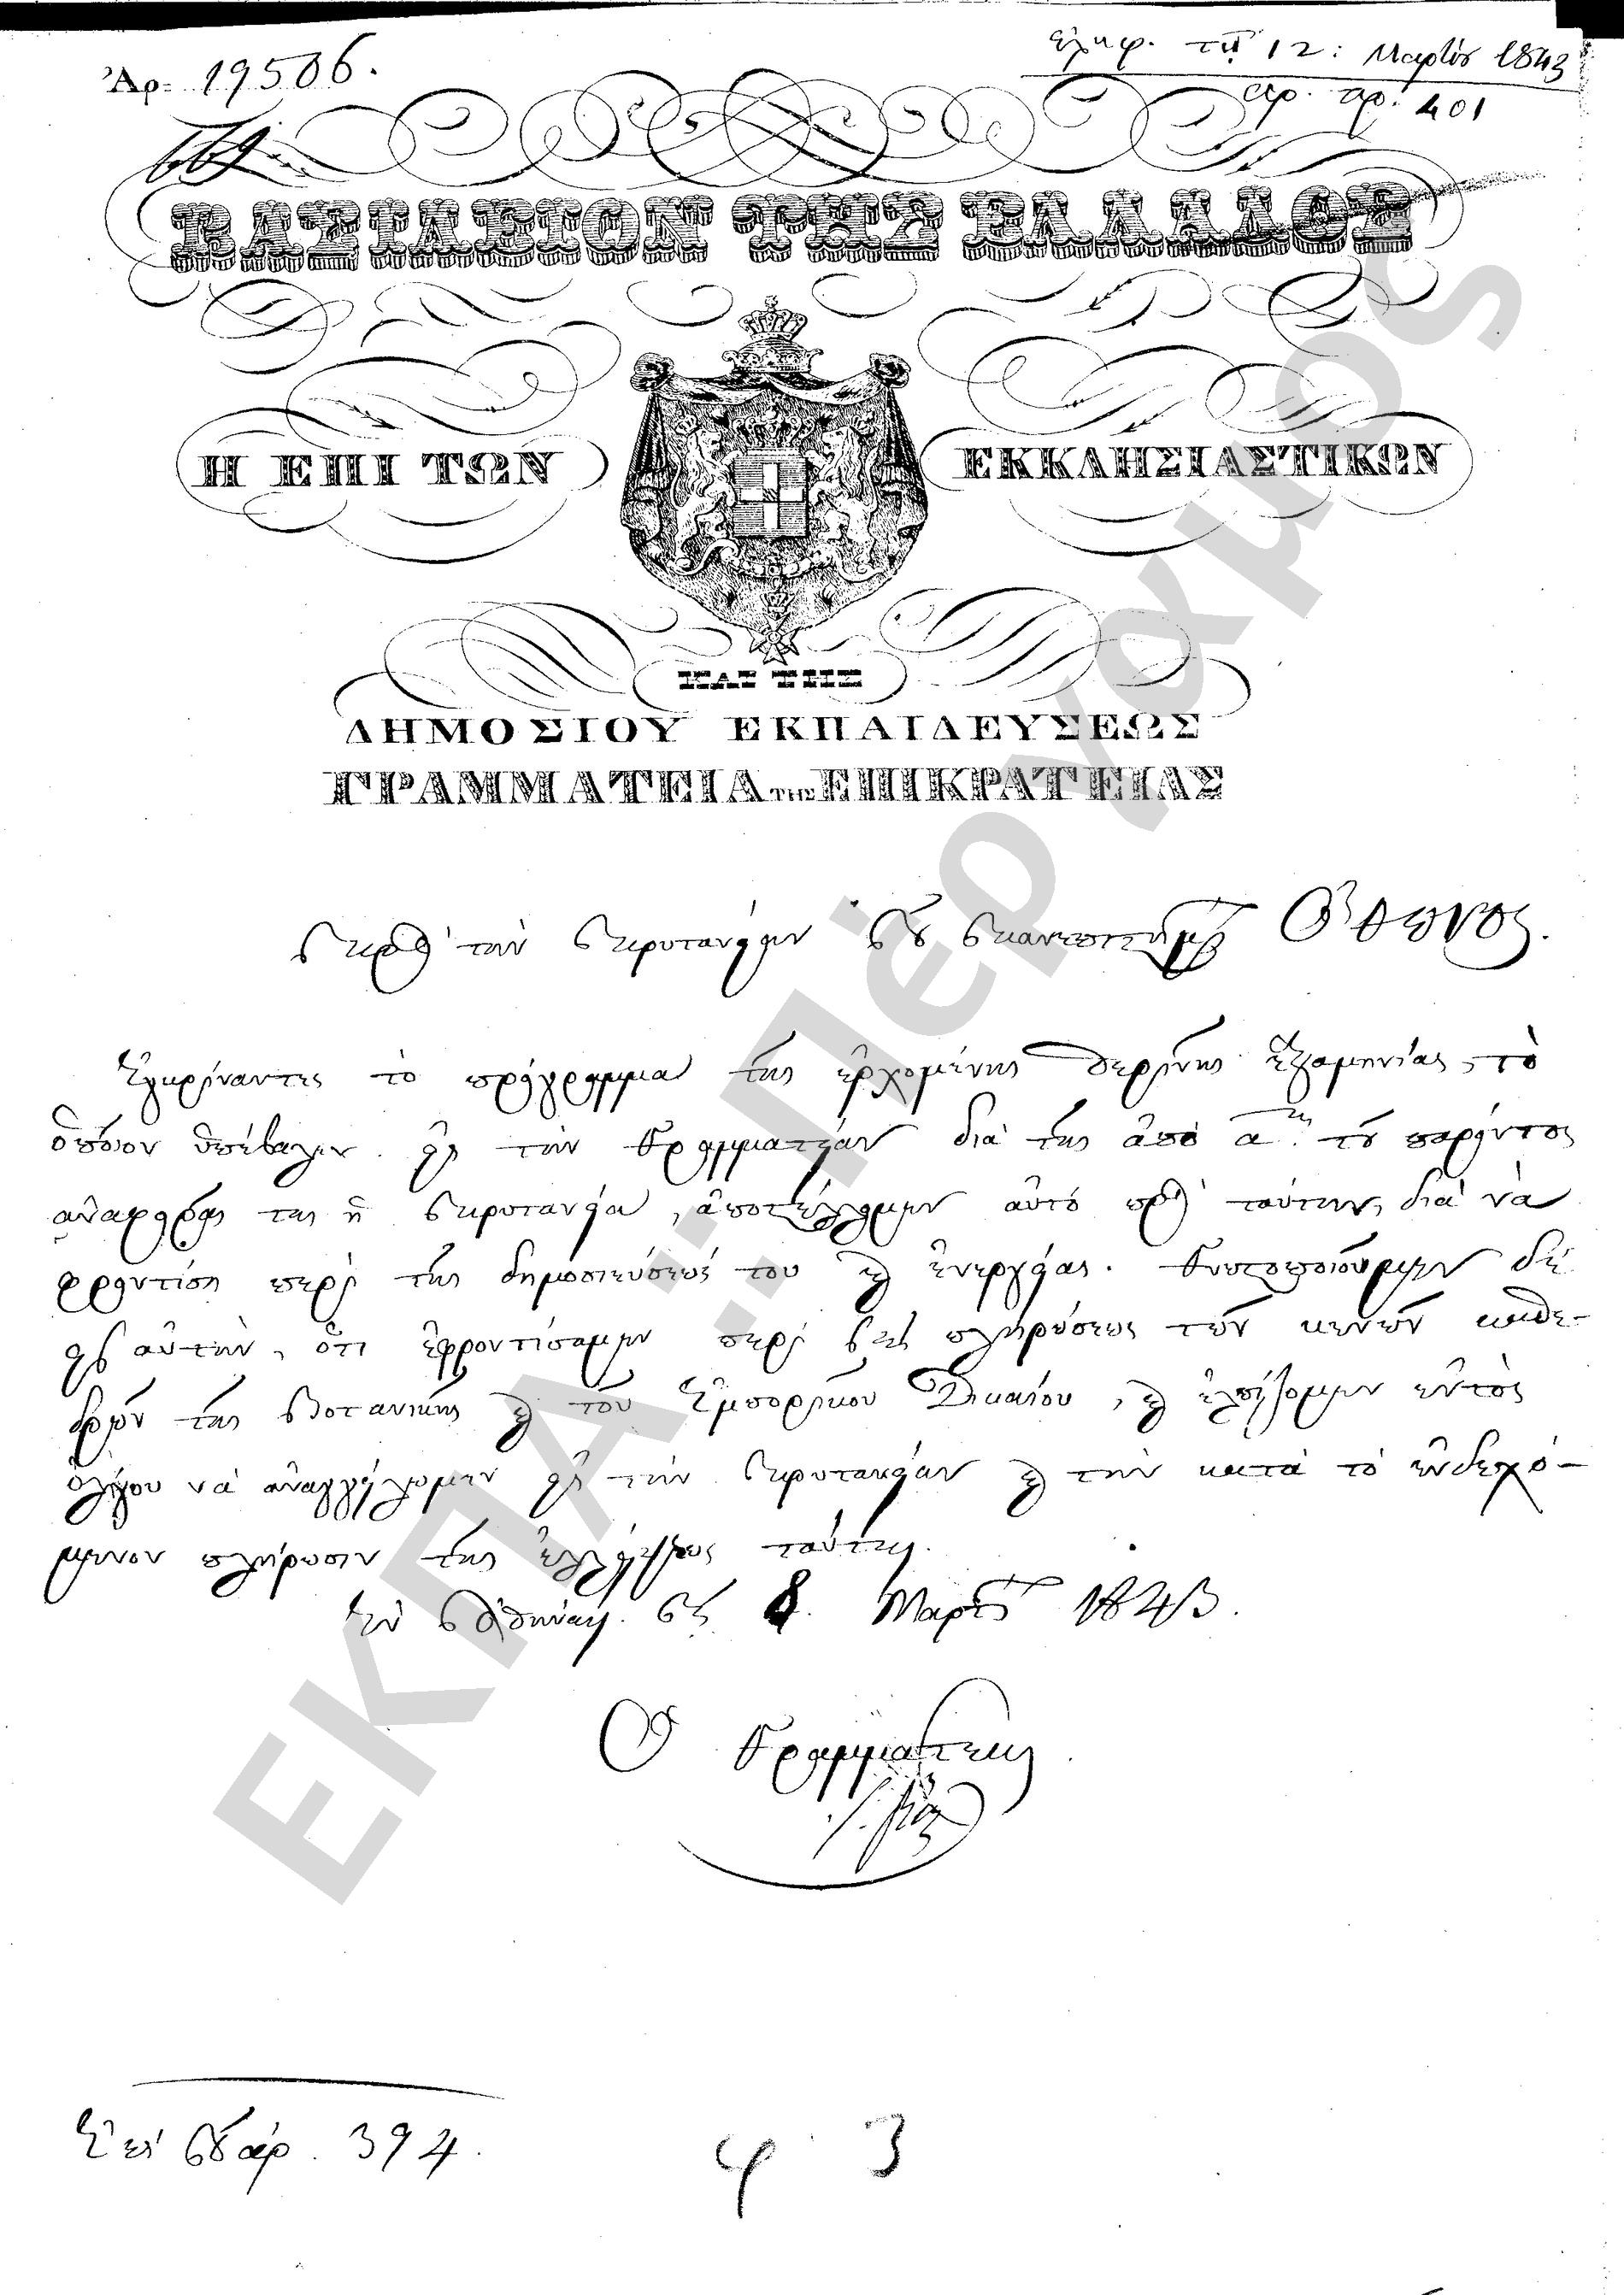 Ἀρ. 19506.
ἐλήφ. τῇ 12: Μαρτίου 1843
ἀρ. πρ. 401
ΒΑΣΙΛΕΙΟΝ ΤΗΣ ΕΛΛΑΔΟΣ
Η ΕΠΙ ΤΩΝ ΕΚΚΛΗΣΙΑΣΤΙΚΩΝ
ΚΑΙ ΤΗΣ
ΔΗΜΟΣΙΟΥ ΕΚΠΑΙΔΕΥΣΕΩΣ
ΓΡΑΜΜΑΤΕΙΑ ΤΗΣ ΕΠΙΚΡΑΤΕΙΑΣ
Πρὸς τὴν Πρυτανείαν τοῦ Πανεπιστημίου Ὄθωνος.
Ἐγκρίναντες τὸ πρόγραμμα τῆς ἐρχομένης θερινῆς ἑξαμηνίας, τὸ
ὁποῖον ὑπέβαλεν εἰς τὴν Γραμματείαν διὰ τῆς ἀπὸ α΄. τοῦ παρόντος
ἀναφορᾶς της ἡ Πρυτανεία, ἀποστέλλομεν αὐτὸ πρὸς ταύτην, διὰ νὰ
φροντίσῃ περὶ τῆς δημοσιεύσεώς του καὶ ἐνεργείας. Γνωστοποιοῦμεν δὲ
εἰς αὐτὴν, ὅτι ἐφροντίσαμεν περὶ τῆς πληρώσεως τῶν κενῶν καθε-
δρῶν τῆς Βοτανικῆς καὶ τοῦ Ἐμπορικοῦ Δικαίου, καὶ ἐλπίζομεν ἐντὸς
ὀλίγου νὰ ἀναγγείλωμεν εἰς τὴν Πρυτανείαν καὶ τὴν κατὰ τὸ ἐνδεχό-
μενον πλήρωσιν τῆς ἐλλείψεως ταύτης.
Ἐν Ἀθήναις τῇ 8. Μαρτίου 1843.
Ὁ Γραμματεὺς
Ἐπὶ τοῦ ἀρ. 394.
φ 3
ΕΚΠΑ.:.Πέργαμος